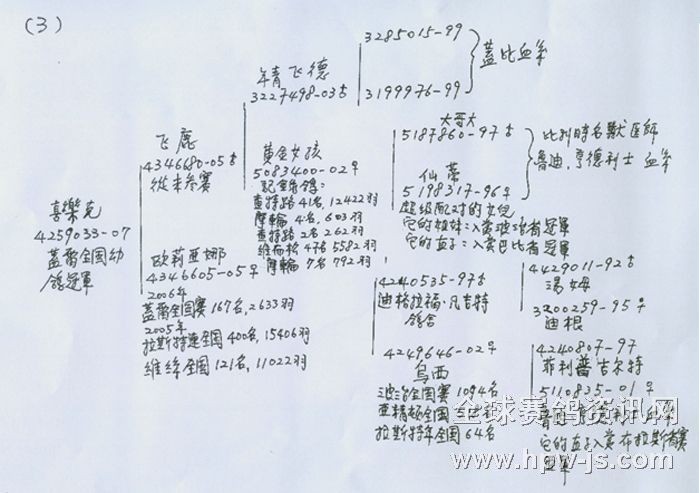 (3)
喜樂克
4259033-07
蓋爾全國幼
鴿冠軍
飞鹿
4346680-05♂
從未参赛
欧莉亚娜
4346605-05♀
2006年
蓋爾全国赛 167名,2633羽
2005年
拉斯特達全国 400名,15406羽
維絲全国 121名,11022羽
年青飞德
3227498-03♂
黄金女孩
5083400-02♀
記錄鴿:
查特路 41名,12422羽
摩輪 4名,603羽
查特路 2名 262羽
維而松 47名 5582羽
摩輪 7名 792羽
3285015-99
3199976-99
蓋比血系
大哥大
5187860-97♂
仙蒂
5198317-96♀
超级配对的女兒
它的姐妹:入赏
它的直子:入赏巴比者冠軍
比利時名獸医師
魯迪.亨德利士 血系
4240535-97♂
迪格拉福·凡吉特
鴿舍
4249646-02♀
乌西
全国赛 1094名
全国
拉斯特年全国 64名
4429011-92♂
湯姆
3200259-95♀
迪根
4240807-97
菲利普吉尔特
5110835-01♀
它的直子入赏 布拉斯者赛
冠軍
全球赛鸽资讯网
www.hpw-js.com